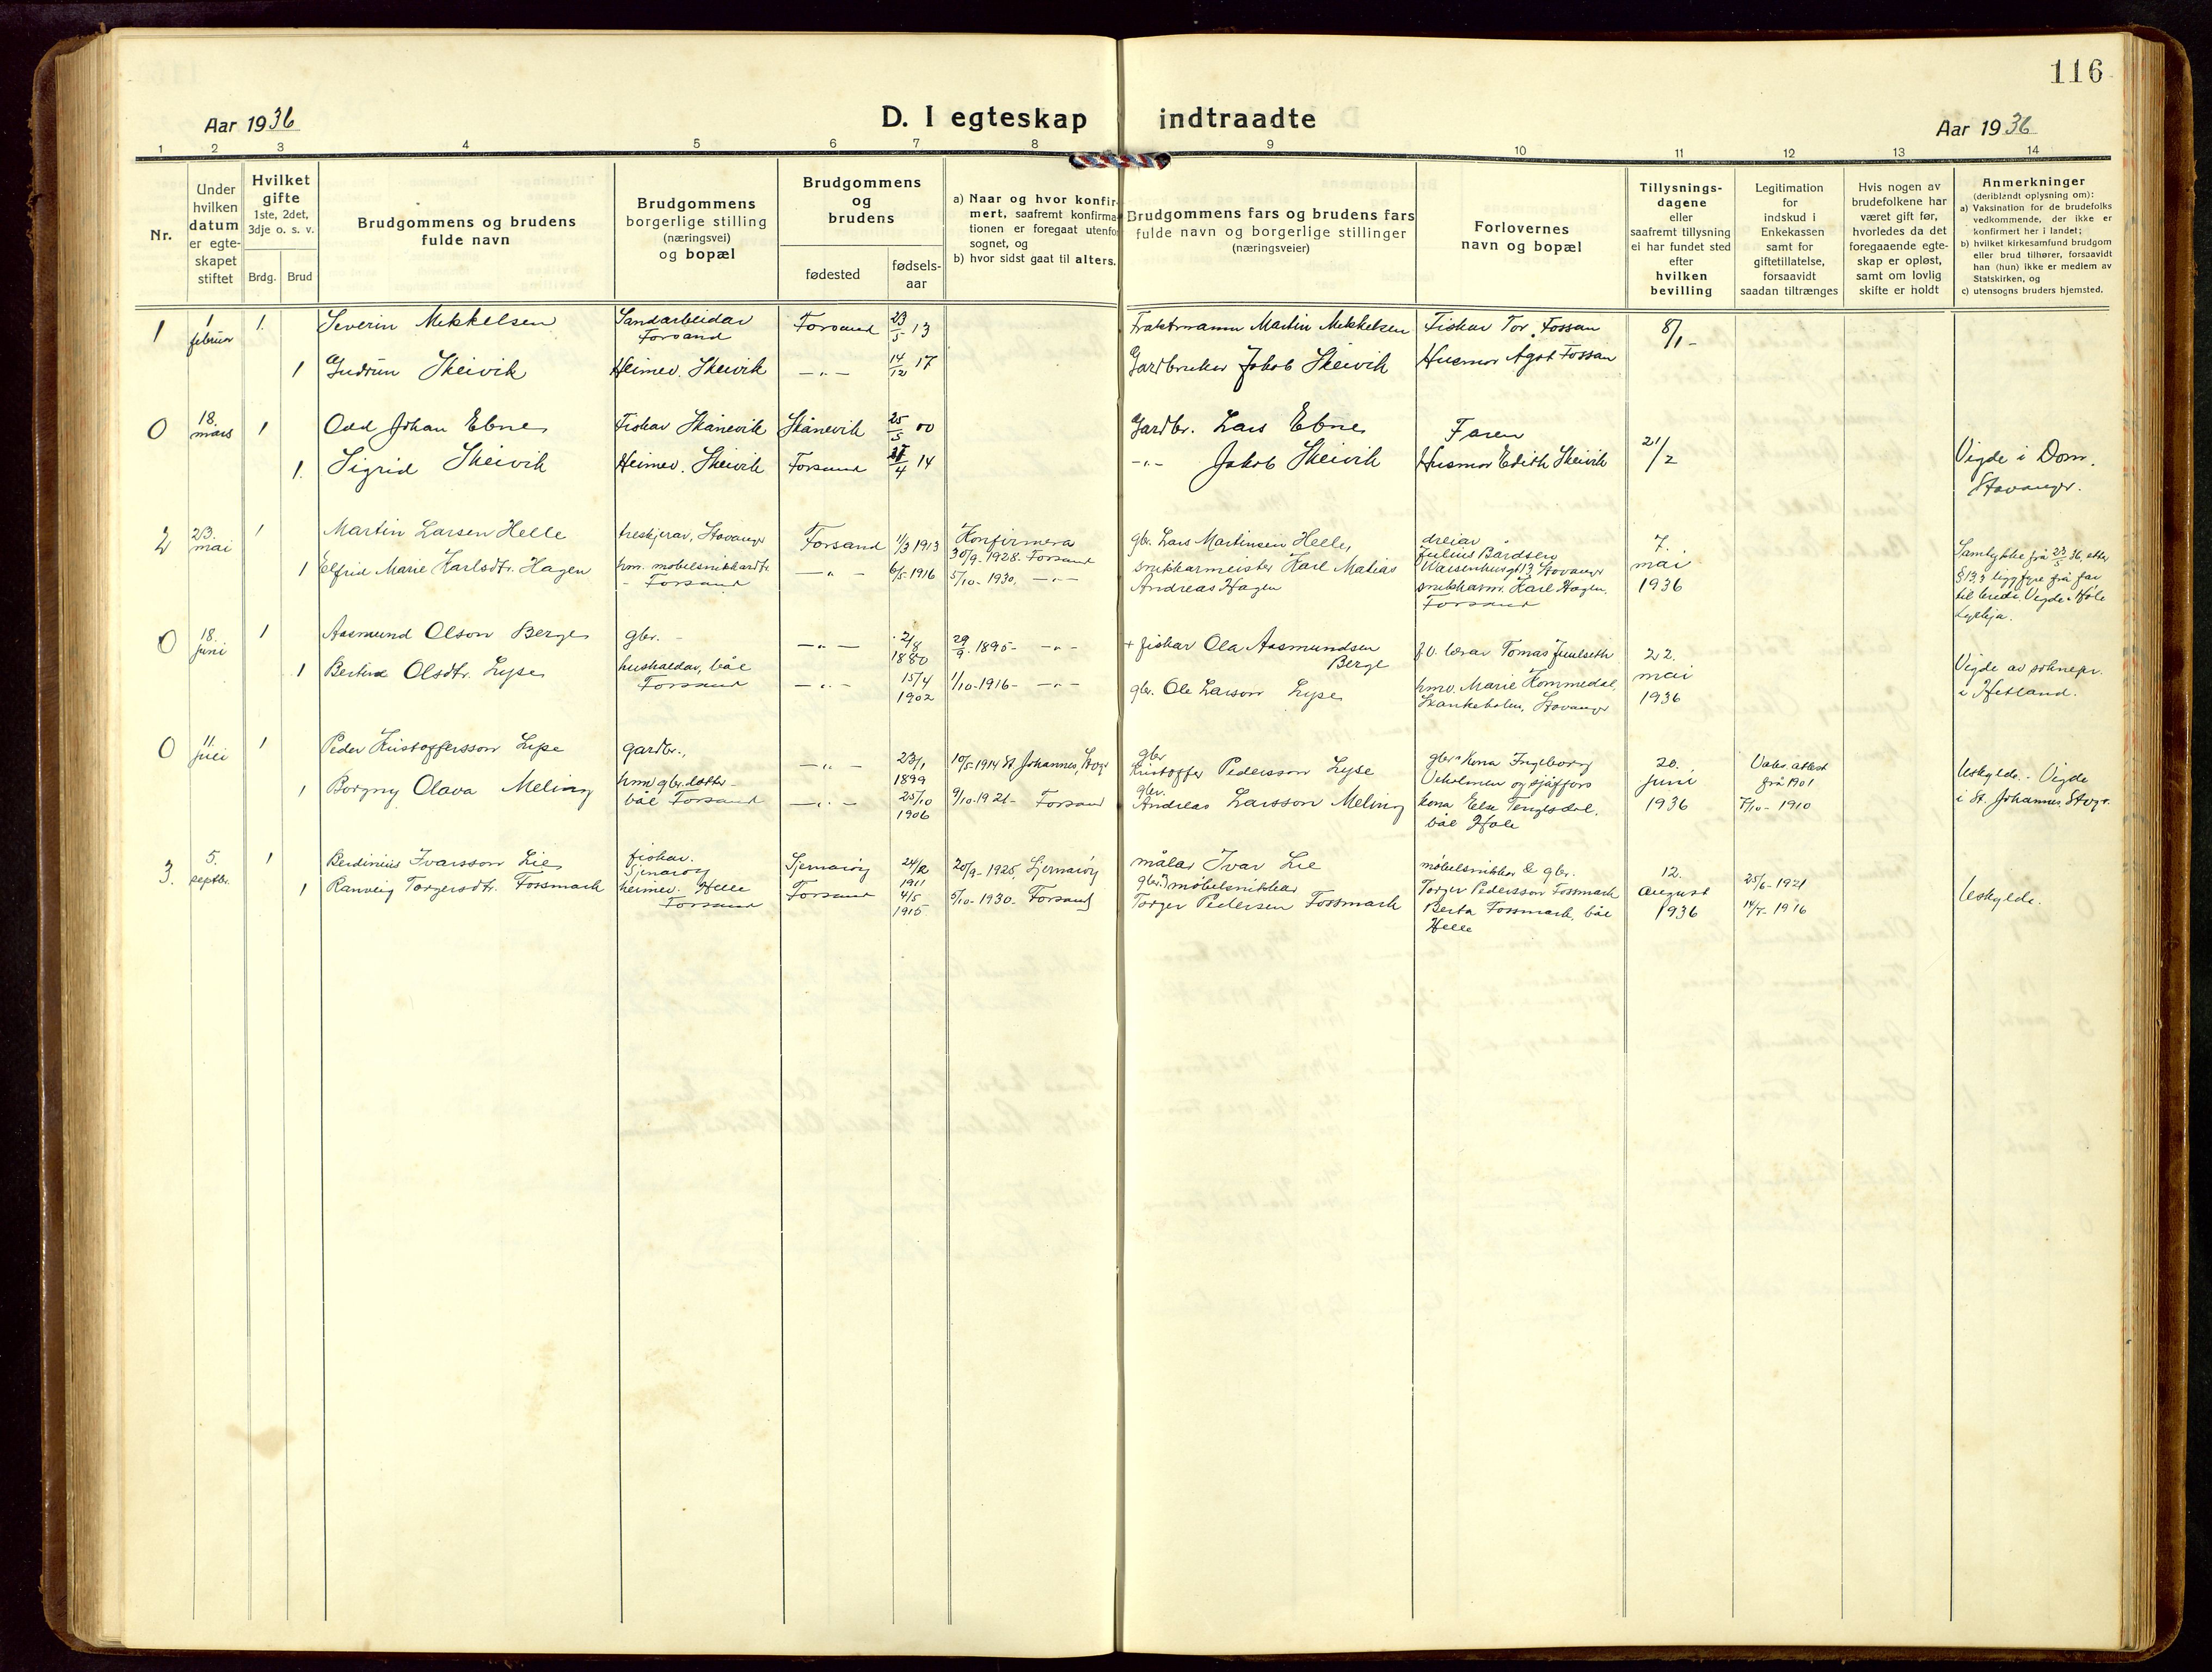 116
Aar 1936
D. I egteskap indtraadte
Aar 1936
1 2 3 4 5 6 7 8 9 10 11 12 13 14
Nr.
Under hvilken datum er egteskapet stiftet
Hvilket gifte
1ste, 2det, 3dje o. s. v.
Brdg. Brud
Brudgommens og brudens fulde navn
Brudgommens borgerlige stilling (næringsvei) og bopæl
Brudgommens og brudens
fødested
fødsels-aar
a) Naar og hvor konfirmert, saafremt konfirmationen er foregaat utenfor sognet, og
b) hvor sidst gaat til alters.
Brudgommens fars og brudens fars fulde navn og borgerlige stillinger (næringsveier)
Forlovernes navn og bopæl
Tillysnings-dagene eller saafremt tillysning ei har fundet sted efter hvilken bevilling
Legitimation for indskud i Enkekassen samt for giftetillatelse, forsaavidt saadan tiltrænges
Hvis nogen av brudefolkene har været gift før, hvorledes da det foregaaende egteskap er opløst, samt om lovlig skifte er holdt
Anmerkninger
(deriblandt oplysning om):
a) Vaksination for de brudefolks vedkommende, der ikke er konfirmert her i landet;
b) hvilket kirkesamfund brudgom eller brud tilhører, forsaavidt han (hun) ikke er medlem av Statskirken, og
c) utensogns bruders hjemsted.
1 1 februar 1. Severin Mekkelsen Sandarbeidar Forsand Forsand 23/5 13 Fraktemann Martin Mekkelsen Fiskar Tor. Fossan 8/1-
1 Gudrun Skeivik Heimev. Skeivik —„— 14/12 17 Gardbruker Jakob Skeivik Husmor Agot Fossan
0 18. mars 1 Odd Johan Ebne Fiskar Skånevik Skånevik 25/5 00 Gardbr. Lars Ebne Faren 21/2
1. Sigrid Skeivik Heimev. Skeivik Forsand /4 14 -„- Jakob Skeivik Husmor Edith Skeivik Vigde i Dom. Stavanger.
2 23. mai 1 Martin Larsen Helle treskjerar, Stavanger Forsand 1/3 1913 Konfirmera 30/9-1928. Forsand gbr. Lars Martinsen Helle, dreiar Julius Bårdsen Waisenhusgt 13 Stavanger 7. mai 1936
1 Elfrid Marie Karlsdtr. Hagen hm. møbelsnikkardtr. - Forsand —„— 6/5-1916 5/10-1930. —„— snikkarmeister Karl Matias Andreas Hagen snikkarm. Karl Hagen, Forsand Samtykke frå 23/5 36, etter § 13, 3 ligg fyre frå far til brudi. Vigde i Høle kyrkja.
0 18. juni 1 Aasmund Olson Berge gbr. - —„— 2/8 1880 29/9. 1895- —„— + fiskar Ola Aasmundsen Berge fv. lærar Tomas Juulseth 22. mai 1936
1 Bertine Olsdtr. Lyse hushaldar, båe Forsand —„— 15/4 1902 1/10-1916- —„— gbr. Ole Larson Lyse hmv. Marie Hommedal, Skankeholen, Stavanger Vigde av soknepr. i Hetland.
0 11. juli 1 Peder Kristoffersson Lyse gardbr., —„— 23/1 1899 10/5-1914 St Johannes, Stvgr gbr Kristoffer Pedersson Lyse gbr. kona Ingeborg Veholmen og sjåffør 20. juni 1936 Vaks. attest frå 1901
1 Borgny Olava Meling hm gbr. dotter - båe Forsand —„— 25/10 1906 9/10-1921- Forsand gbr. Andreas Larsson Meling kona Else Tengesdal, båe Høle /10-1910 Uskylde. - Vigde i St. Johannes, Stvgr.
3. 5. septbr. 1 Berdinius Ivarsson Lie fiskar. Sjernarøy Sjernarøy 24/12 1911 20/9-1925, Sjernarøy målar Ivar Lie møbelsnikkar & gbr. Torger Pedersson Fossmark 12. august 1936 25/6-1921
1 Ranveig Torgersdtr. Fossmark heimev. Helle Forsand Forsand 4/5 1915 5/10-1930- Forsand gbr. & møbelsnikkar Torger Pedersen Fossmark Berta Fossmark, båe Helle 14/7-1916 Uskylde.